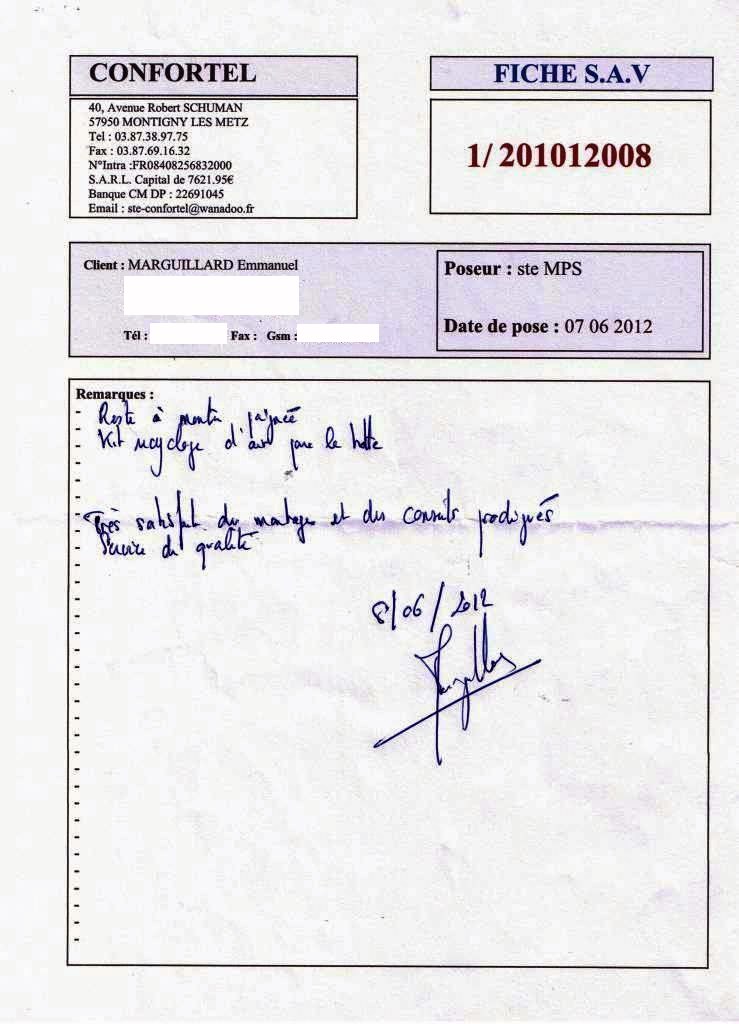 CONFORTEL
40, Avenue Robert SCHUMAN
57950 MONTIGNY LES METZ
Tel : 03.87.38.97.75
Fax : 03.87.69.16.32
N°Intra :FR08408256832000
S.A.R.L. Capital de 7621.95€
Banque CM DP : 22691045
Email : ste-confortel@wanadoo.fr
FICHE S.A.V
1/ 201012008
Client : MARGUILLARD Emmanuel
Tél : Fax : Gsm :
Poseur : ste MPS
Date de pose : 07 06 2012
Remarques :
Reste à monter
Kit recyclage d'air pour la hotte
Très satisfait du montage et des conseils prodigués
Service de qualité
8/06/2012